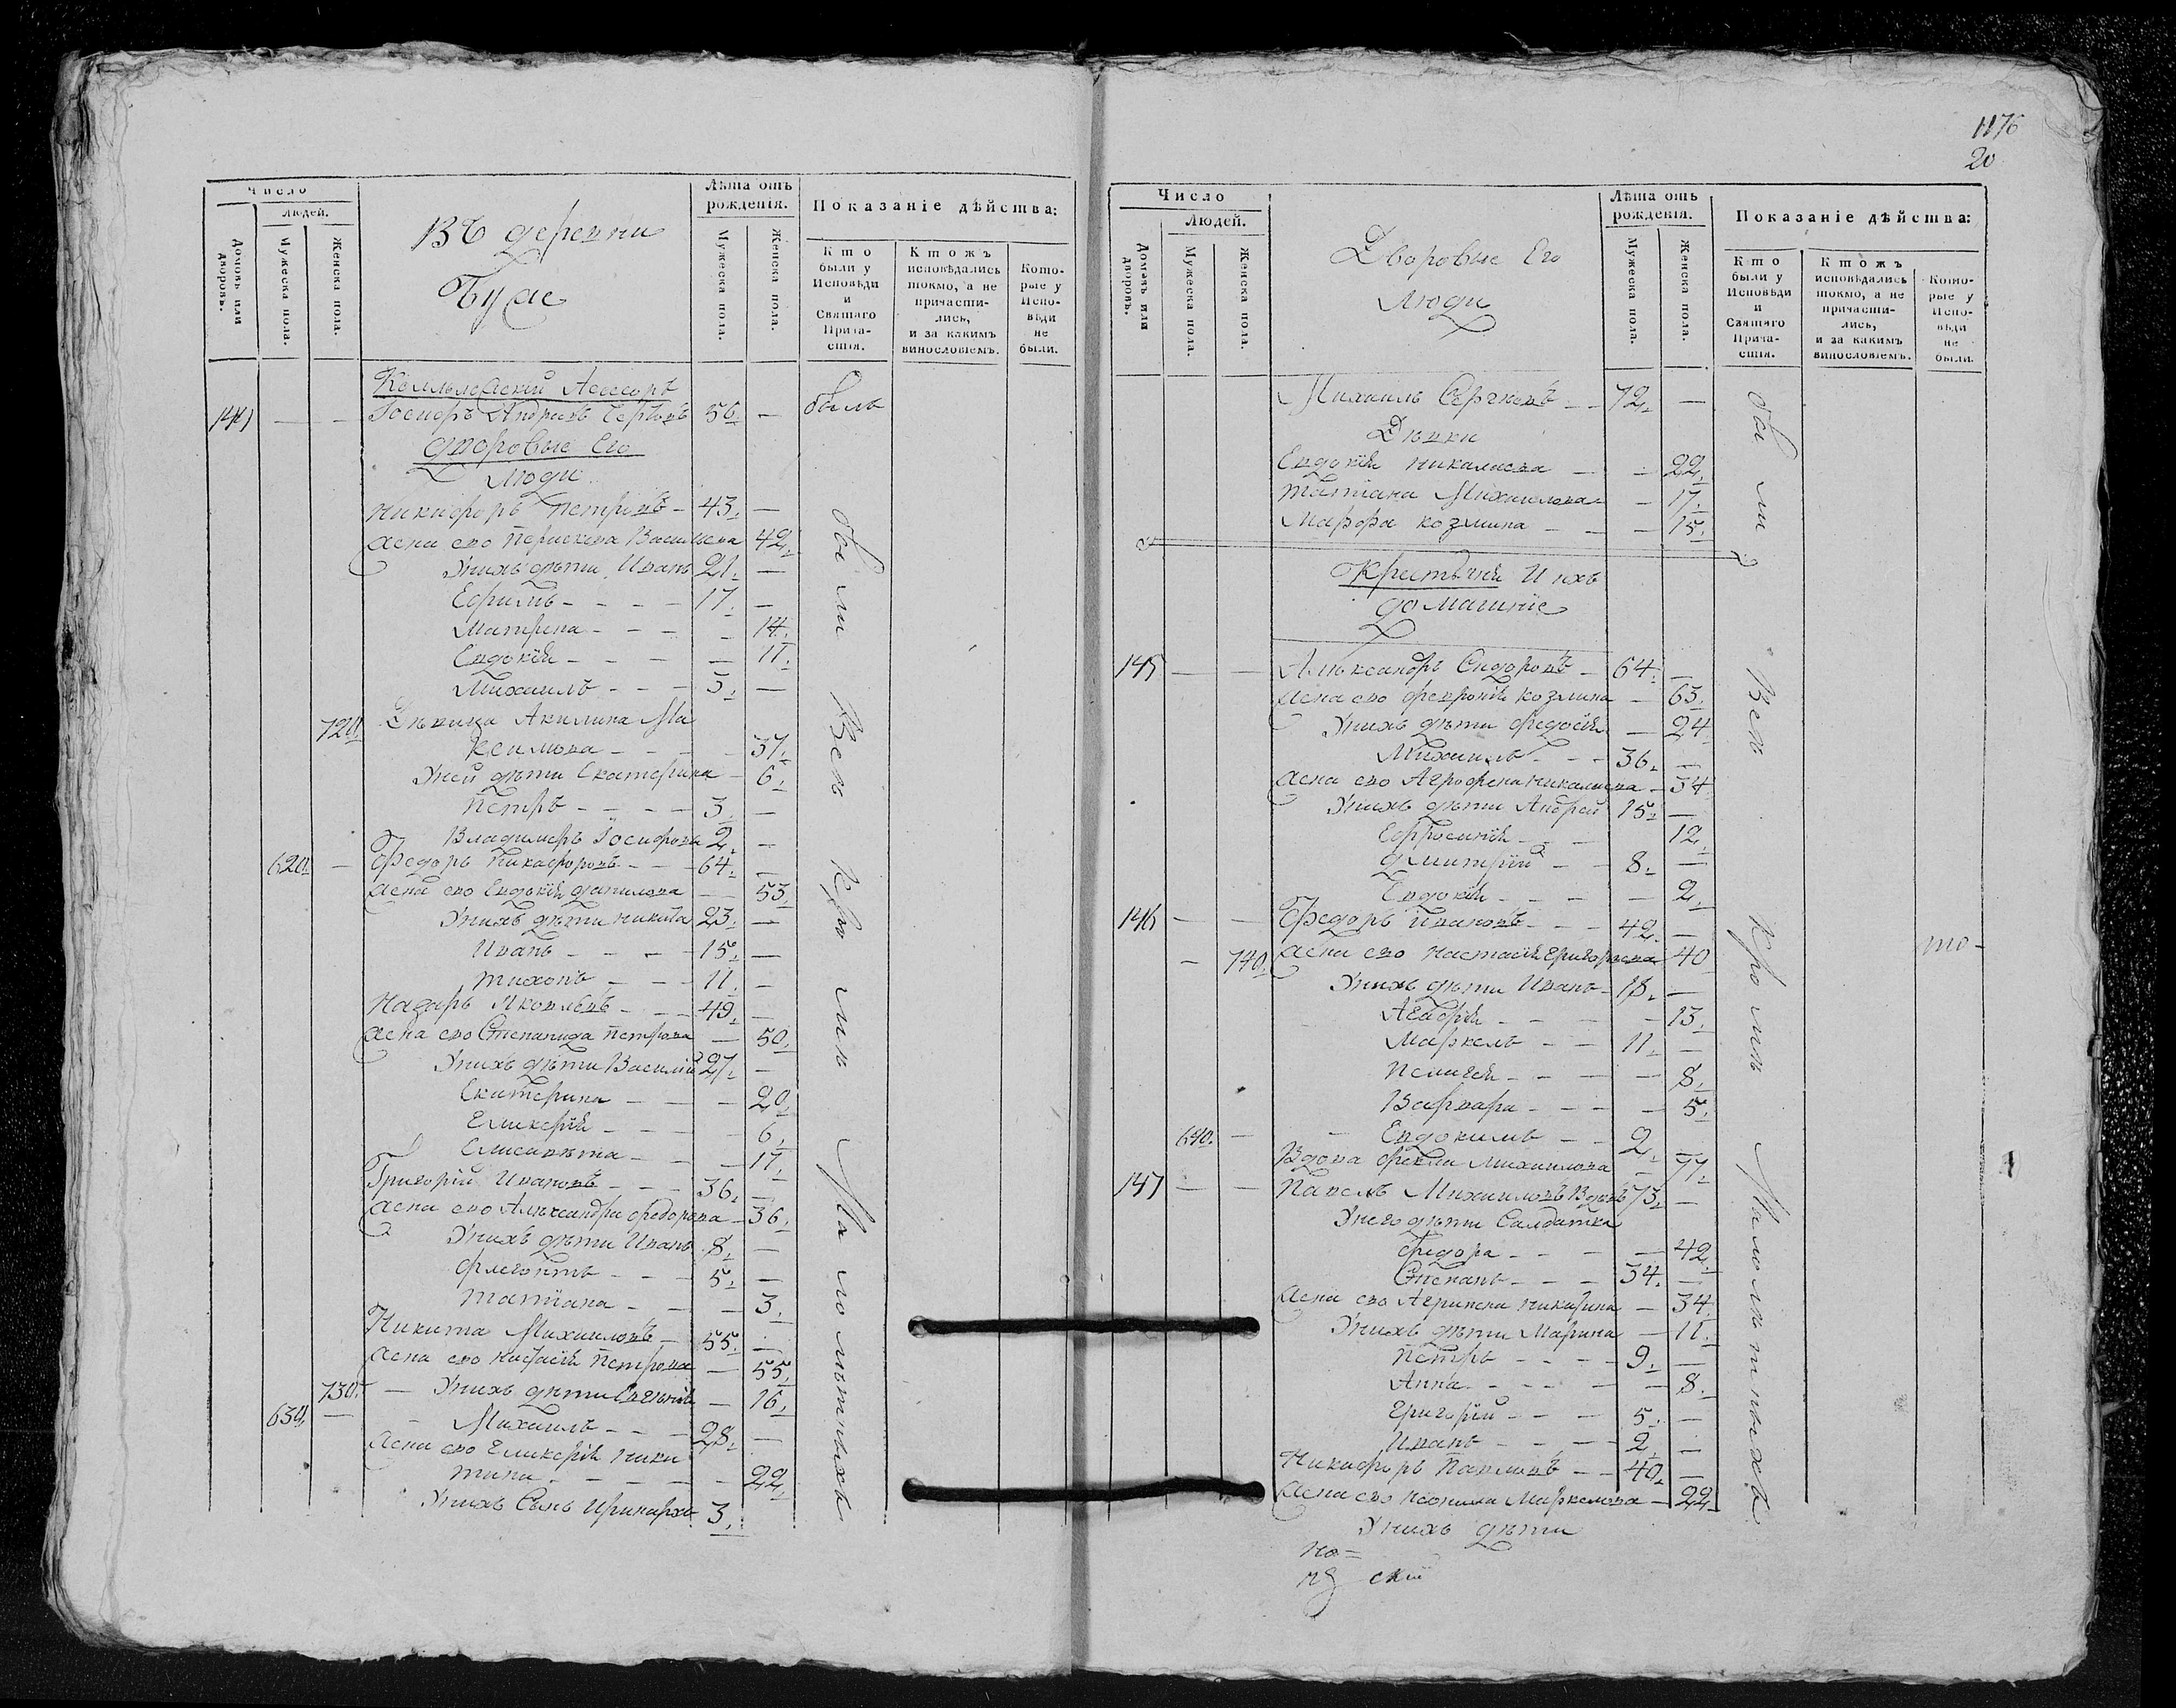 1176
20
Число
Людей.
Домовъ или дворовъ.
Мужеска пола.
Женска пола.
Въ деревни
Лѣта отъ рожденія.
Мужеска пола.
Женска пола.
Показаніе дѣйства:
Кто были у Исповѣди и Святаго Прича-стія.
Ктожъ исповѣдались токмо, а не причасти-лись, и за какимъ винословіемъ.
Кото-рые у Испо-вѣди не были.
Асессоръ
Андреевъ 56. — былъ
дворовые Его
Люди
Никифоръ Петровъ — 43. —
жена его Васильева 42.
Унихъ дѣти Иванъ 21. —
Ефимъ — 17. —
Матрена — 14.
Евдокія — 11.
Михаилъ — 5. —
720. Дѣвица Акилина Ма
ксимова — 37.
Уней дѣти Екатерина — 6.
Петръ — 3. —
Владимеръ Іосифовъ 2. —
620. — Федоръ Никифоровъ — 64. —
жена его Евдокія Данилова — 53.
Унихъ дѣти Никита 23. —
Иванъ — 15. —
Тихонъ — 11. —
Назаръ Яковлевъ — 49. —
жена его Степанида Петрова — 50.
Унихъ дѣти Василій 27. —
Екатерина — 20.
Гликерія — 6.
Елисавета — 17.
Григорій Ивановъ — 36. —
жена его Александра Федорова — 36.
Унихъ дѣти Иванъ 8. —
Флегонтъ — 5. —
Татіана — 3.
Никита Михаиловъ — 55. —
жена его Настасія Петрова — 55.
730. — Унихъ дѣти — 16.
630. — Михаилъ — 28. —
жена его Гликерія Ники
тина — 22.
Унихъ Сынъ Иринархъ 3.
были Всѣ Кромѣ Малолѣтныхъ
Число
Людей.
Домовъ или дворовъ.
Мужеска пола.
Женска пола.
Дворовые Его
Люди
Лѣта отъ рожденія.
Мужеска пола.
Женска пола.
Показаніе дѣйства:
Кто были у Исповѣди и Святаго Прича-стія.
Ктожъ исповѣдались токмо, а не причасти-лись, и за какимъ винословіемъ.
Кото-рые у Испо-вѣди не были.
Михаилъ Сергѣевъ — 72. —
Дѣвки
Евдокія Николаева — 22.
Татіана Михаилова — 17.
Марфа Козмина — 15.
Крестьяне И ихъ
домашніе
145 — — Александръ Сидоровъ — 64. —
жена его Феврониія Козмина — 63.
Унихъ дѣти Федосія — 24
Михаилъ — 36. —
жена его Агрофена Николаева — 34
Унихъ дѣти Андрей 15. —
Ефросинія — 12.
Дмитрій — 8. —
Евдокія — 2.
146 — — Федоръ Ивановъ — 42. —
— 740. жена его Настасія Григорьева 40
Унихъ дѣти Иванъ 18. —
Агафія — 13.
Маркелъ — 11. —
Пелагея — 8.
Варвара — 5.
640. — Евдокимъ — 2. —
Вдова Фекла Михаилова — 77.
147 — — Павелъ Михаиловъ Вдовъ 73. —
Унего дѣти Салдатка
Федора — 42.
Степанъ — 34. —
жена его Агрипена Никитина — 34.
Унихъ дѣти Марина — 11.
Петръ — 9. —
Анна — 8.
Григорій — 5. —
Иванъ — 2. —
Никифоръ Павловъ — 40. —
жена его Неонила Маркелова — 22.
Унихъ дѣти
скій
были Всѣ Кромѣ Малолѣтныхъ